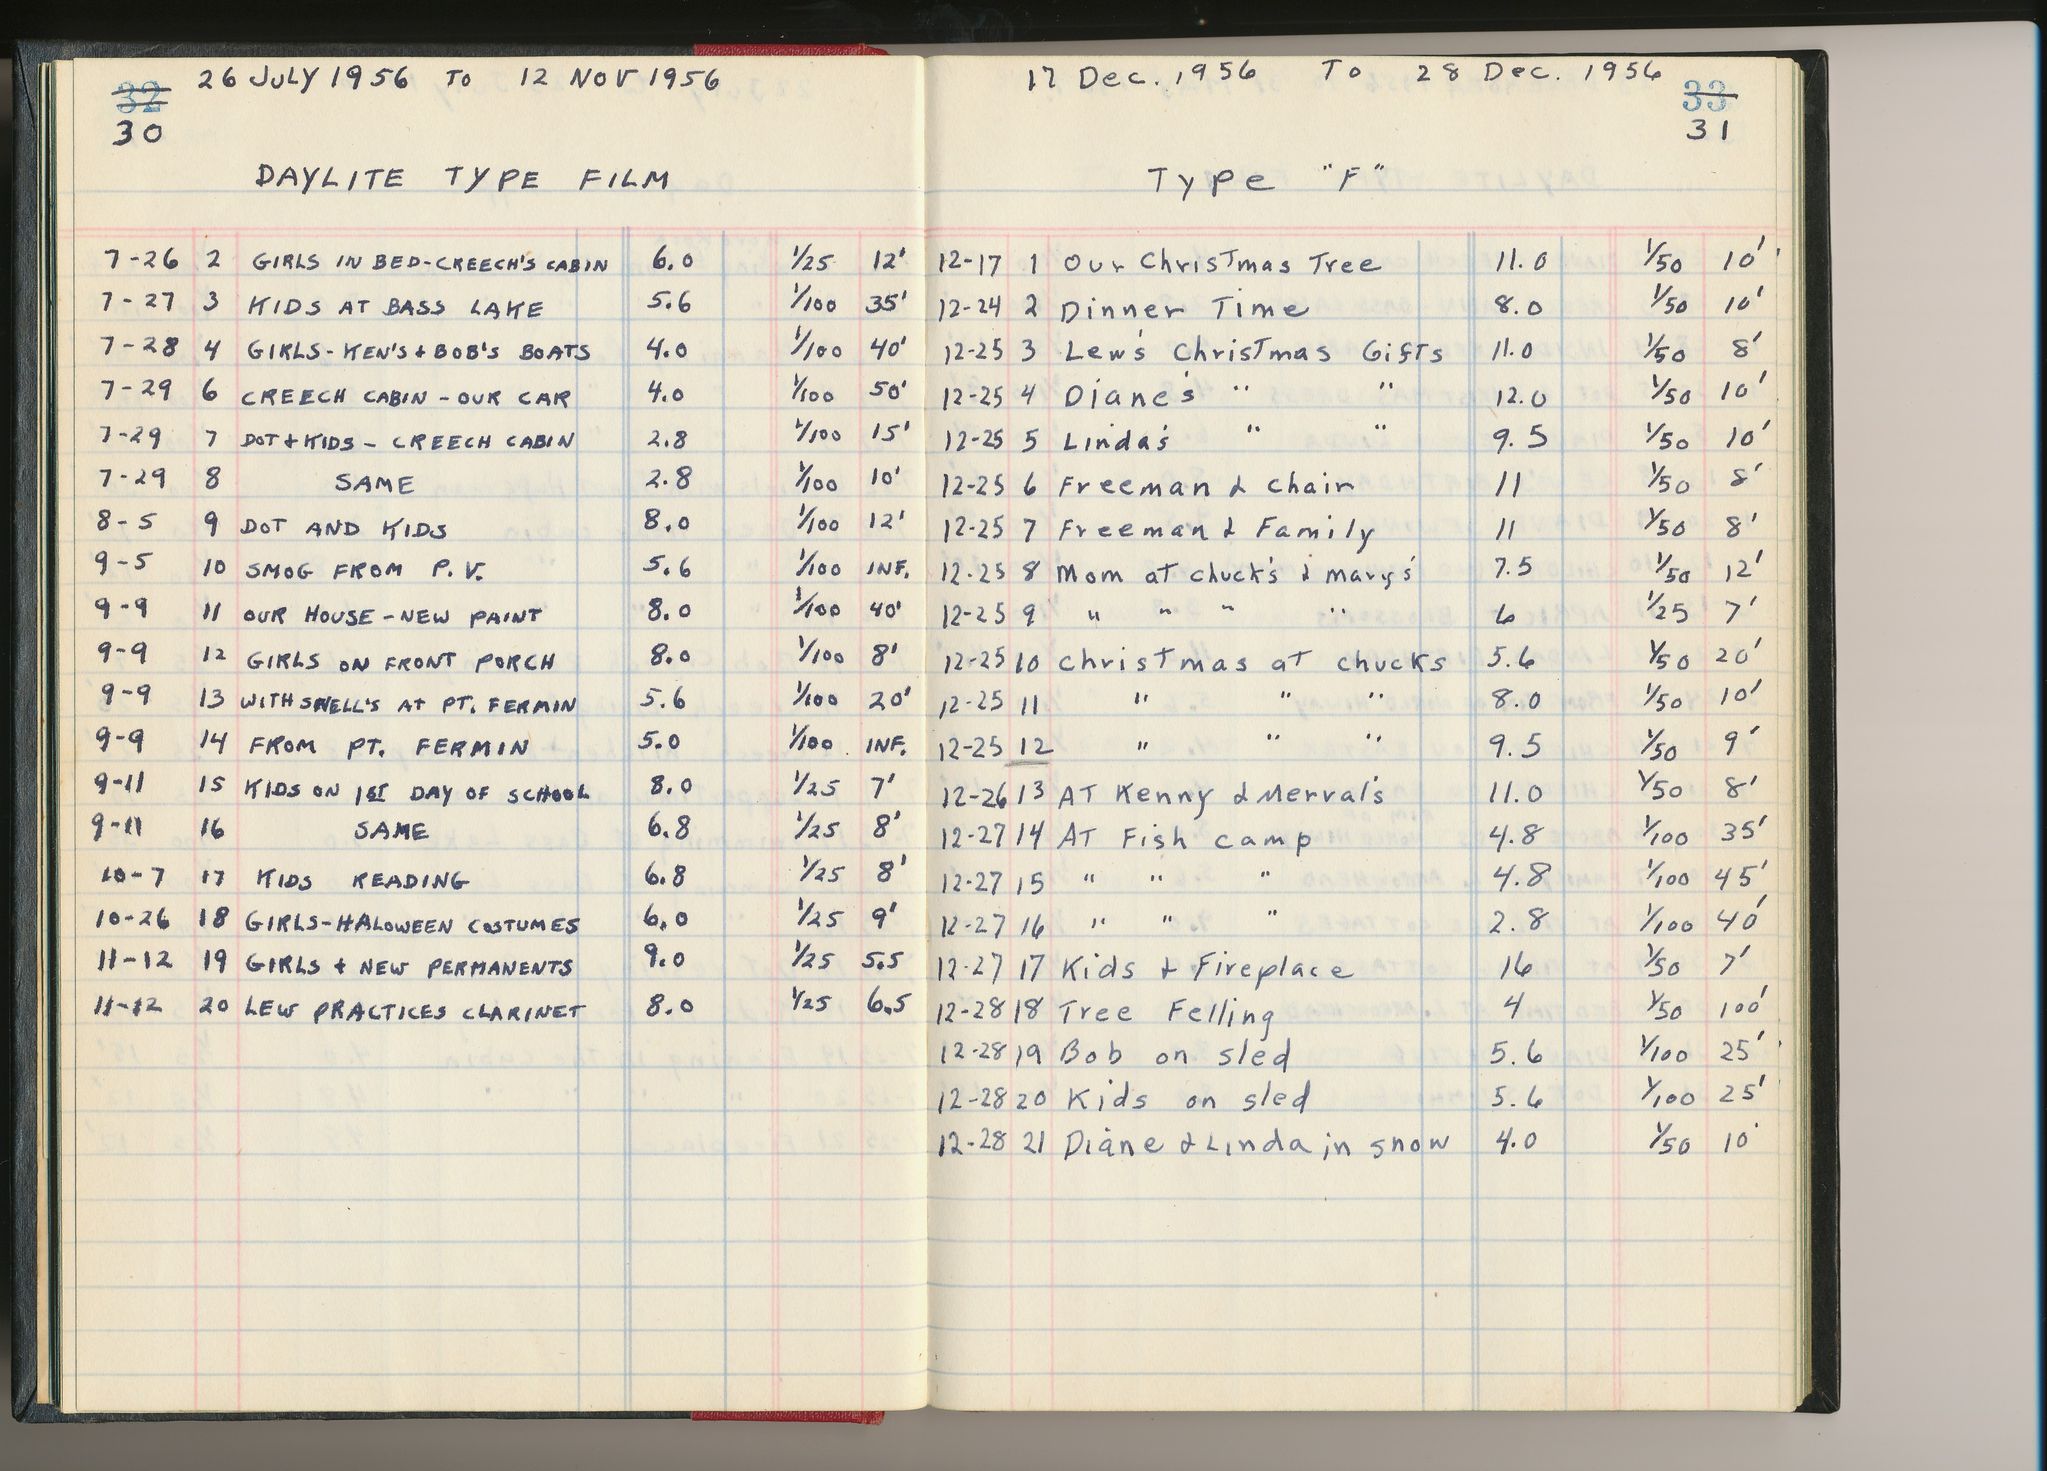 32
30
26 JULY 1956 TO 12 NOV 1956
DAYLITE TYPE FILM
7-26 2 GIRLS IN BED-CREECH'S CABIN 6.0 1/25 12'
7-27 3 KIDS AT BASS LAKE 5.6 1/100 35'
7-28 4 GIRLS-KEN'S + BOB'S BOATS 4.0 1/100 40'
7-29 6 CREECH CABIN - OUR CAR 4.0 1/100 50'
7-29 7 DOT + KIDS - CREECH CABIN 2.8 1/100 15'
7-29 8 SAME 2.8 1/100 10'
8-5 9 DOT AND KIDS 8.0 1/100 12'
9-5 10 SMOG FROM P.V. 5.6 1/100 INF.
9-9 11 OUR HOUSE - NEW PAINT 8.0 1/100 40'
9-9 12 GIRLS ON FRONT PORCH 8.0 1/100 8'
9-9 13 WITH SNELL'S AT PT. FERMIN 5.6 1/100 20'
9-9 14 FROM PT. FERMIN 5.0 1/100 INF.
9-11 15 KIDS ON 1ST DAY OF SCHOOL 8.0 1/25 7'
9-11 16 SAME 6.8 1/25 8'
10-7 17 KIDS READING 6.8 1/25 8'
10-26 18 GIRLS-HALOWEEN COSTUMES 6.0 1/25 9'
11-12 19 GIRLS + NEW PERMANENTS 9.0 1/25 5.5
11-12 20 LEW PRACTICES CLARINET 8.0 1/25 6.5
17 Dec. 1956 TO 28 Dec. 1956
33
31
Type "F"
12-17 1 Our Christmas Tree 11.0 1/50 10'
12-24 2 Dinner Time 8.0 1/50 10'
12-25 3 Lew's Christmas Gifts 11.0 1/50 8'
12-25 4 Diane's " " 12.0 1/50 10'
12-25 5 Linda's " " 9.5 1/50 10'
12-25 6 Freeman & chair 11 1/50 8'
12-25 7 Freeman & Family 11 1/50 8'
12-25 8 Mom at chuck's & mary's 7.5 1/50 12'
12-25 9 " " " " 6 1/25 7'
12-25 10 Christmas at chucks 5.6 1/50 20'
12-25 11 " " " 8.0 1/50 10'
12-25 12 " " " 9.5 1/50 9'
12-26 13 AT Kenny & Merval's 11.0 1/50 8'
12-27 14 AT Fish camp 4.8 1/100 35'
12-27 15 " " " 4.8 1/100 45'
12-27 16 " " " 2.8 1/100 40'
12-27 17 Kids & Fireplace 16 1/50 7'
12-28 18 Tree Felling 4 1/50 100'
12-28 19 Bob on sled 5.6 1/100 25'
12-28 20 Kids on sled 5.6 1/100 25'
12-28 21 Diane & Linda in snow 4.0 1/50 10'